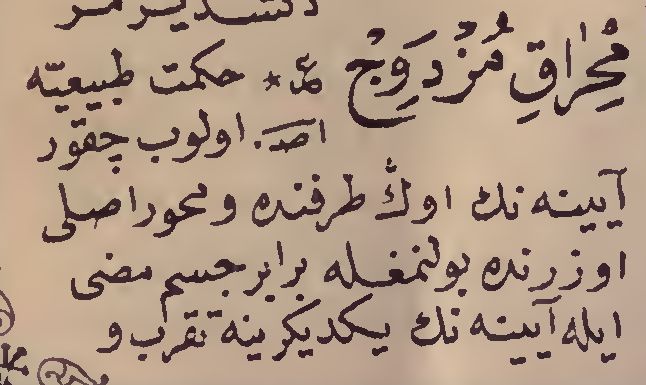 مِحْرَاقِ مُزْدَوِجْ عر * حكمت طبيعيّه
اصـ. اولوب چقور
آيينه نك اوڭ طرفنده و محور اصلى
اوزرنده بولنمغله برابر جسم مضى
ايله آيينه نك يكديكرينه تقرب و